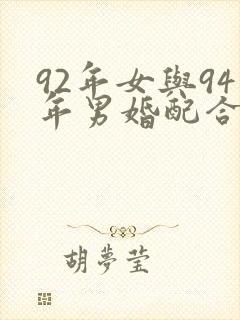 92年女與94
年男婚配合
胡夢莹